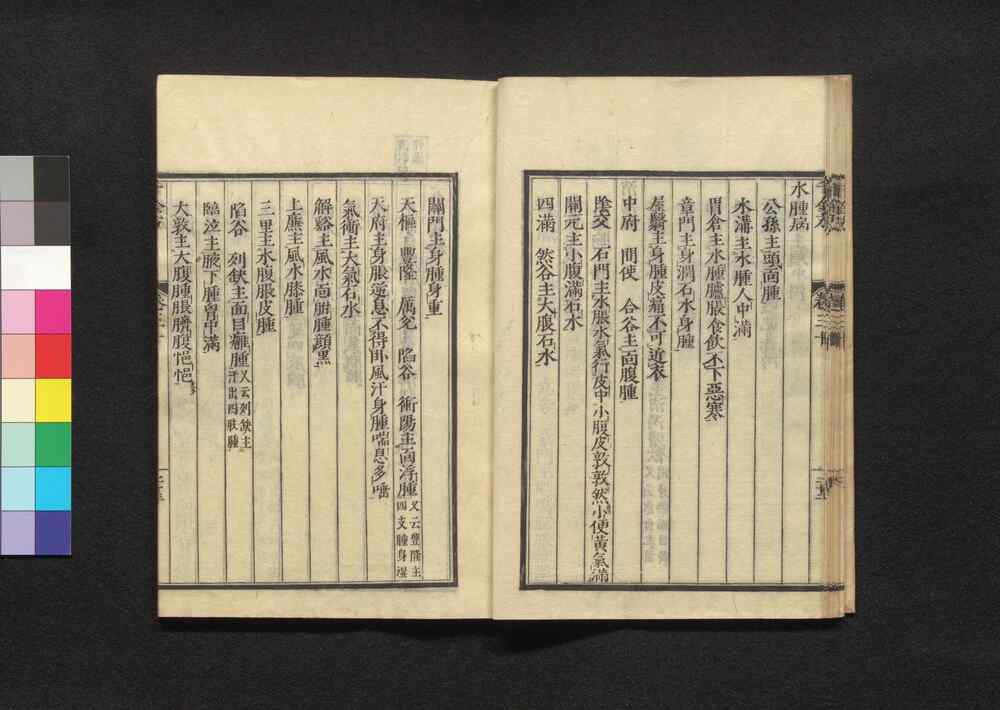 水腫病
公孫主頭面腫
水溝主水腫人中滿
胃倉主水腫臚脹食飲不下惡寒
章門主身潤石水身腫
屋翳主身腫皮痛不可近衣
中府 間使 合谷主面腹腫
陰交 石門主水脹水氣行皮中小腹皮敦敦然小便黃氣滿
關元主小腹滿石水
四滿 然谷主大腹石水
關門主身腫身重
天樞 豐隆 厲兌 陷谷 衝陽主面浮腫又云豐隆主四支腫身濕
天府主身脹逆息不得臥風汗身腫喘息多唾
氣衝主大氣石水
解谿主風水面胕腫顏黑
上廉主風水膝腫
三里主水腹脹皮腫
陷谷 列缺主面目癰腫又云列缺主汗出四肢腫
臨泣主腋下腫胷中滿
大敦主大腹腫脹臍腹悒悒